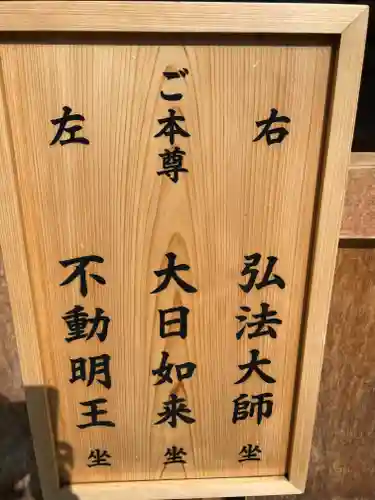 右 弘法大師 坐
ご本尊 大日如来 坐
左 不動明王 坐